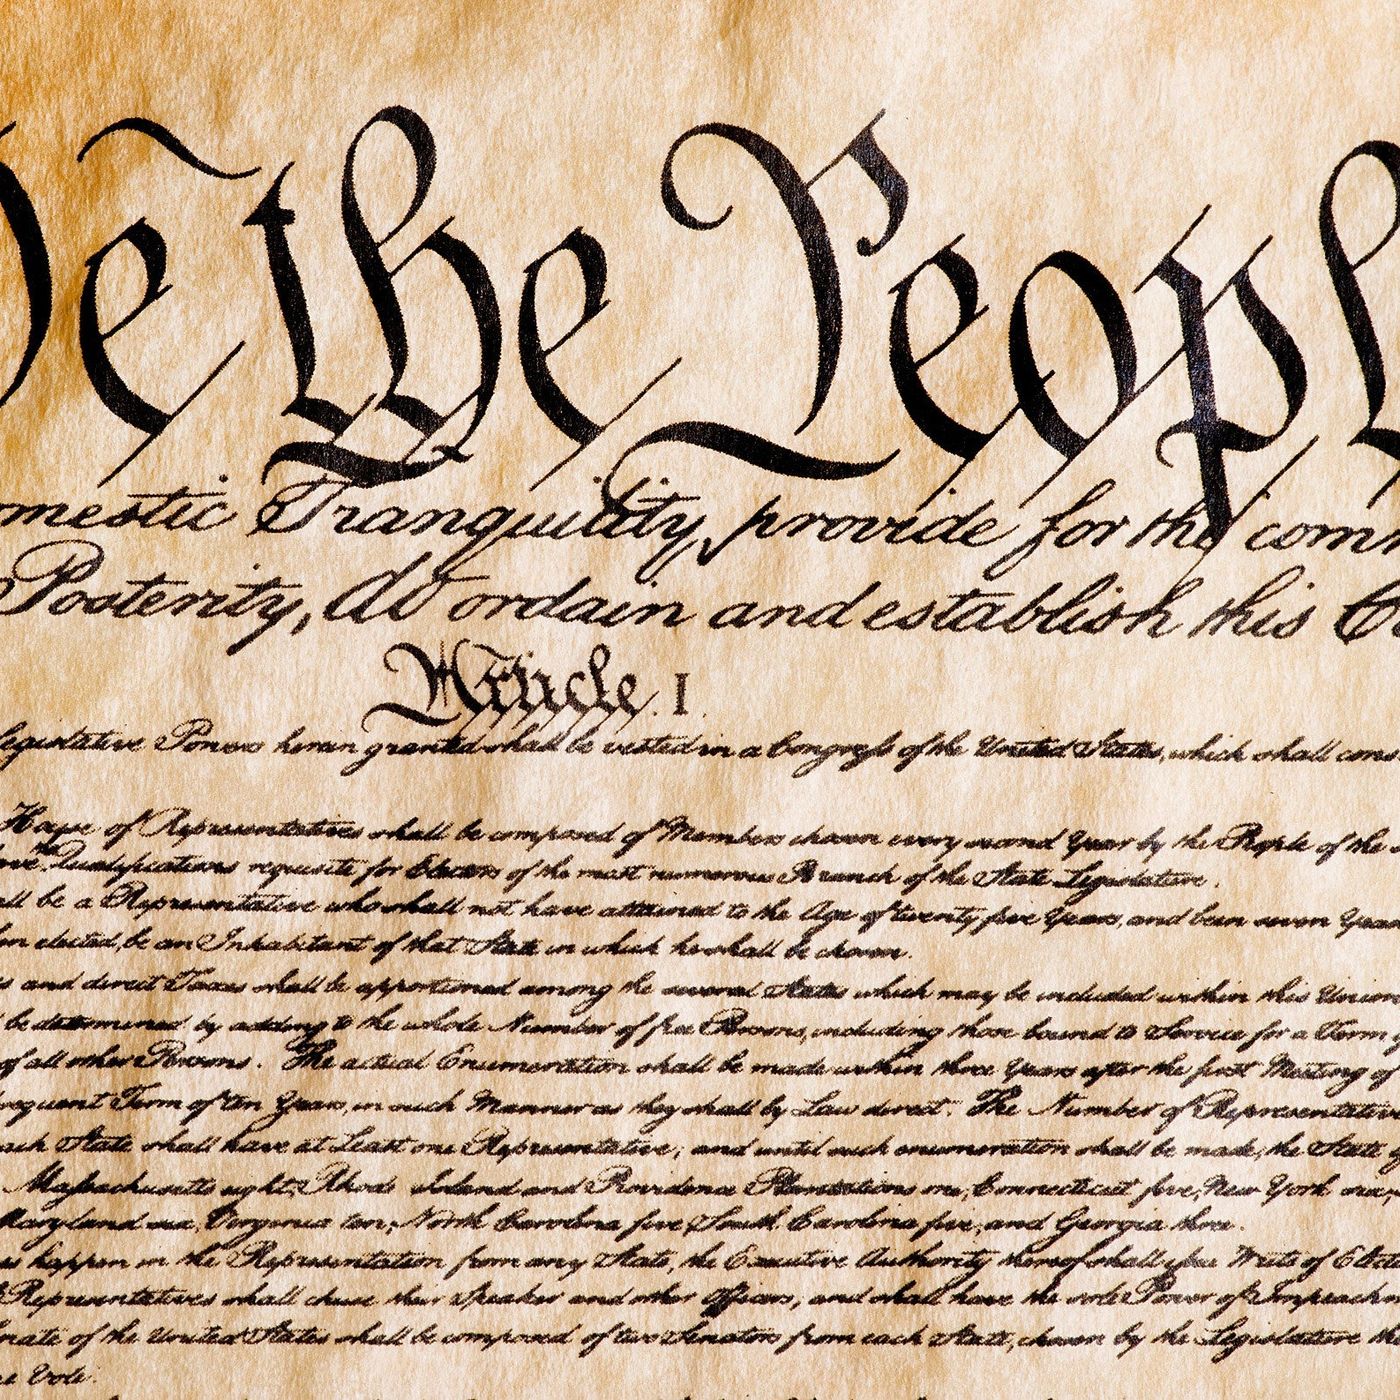 We the People
omestic Tranquility, provide for the com
Posterity, do ordain and establish this Co
Article. I.
Legislative Powers herein granted shall be vested in a Congress of the United States, which shall cons
House of Representatives shall be composed of Members chosen every second Year by the People of the
have Qualifications requisite for Electors of the most numerous Branch of the State Legislature.
all be a Representative who shall not have attained to the Age of twenty five Years, and been seven Years
en elected, be an Inhabitant of that State in which he shall be chosen.
s and direct Taxes shall be apportioned among the several States which may be included within this Union
be determined by adding to the whole Number of free Persons, including those bound to Service for a Term
of all other Persons. The actual Enumeration shall be made within three Years after the first Meeting of
sequent Term of ten Years, in such Manner as they shall by Law direct. The Number of Representatives
each State shall have at Least one Representative; and until such enumeration shall be made, the State
Massachusetts eight, Rhode Island and Providence Plantations one, Connecticut five, New York six,
Maryland six, Virginia ten, North Carolina five, South Carolina five, and Georgia three.
es happen in the Representation from any State, the Executive Authority thereof shall issue Writs of Elect
Representatives shall chuse their Speaker and other Officers; and shall have the sole Power of Impeachm
enate of the United States shall be composed of two Senators from each State, chosen by the Legislature the
ne Vote.